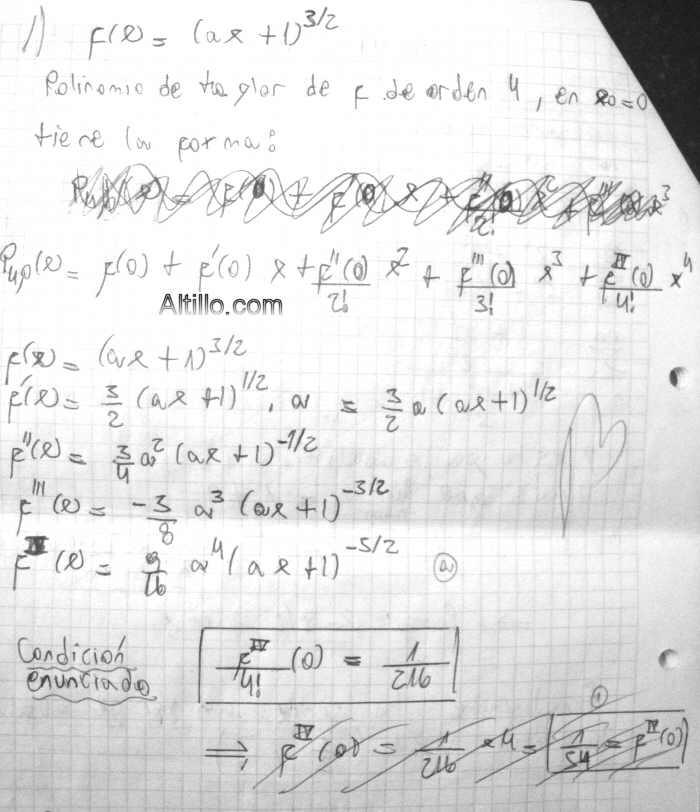 1) f(x) = (ax + 1)^3/2
Polinomio de taylor de f de orden 4, en x0=0
tiene la forma:
P4,0(x) = f(0) + f'(0) x + f''(0)/2! x^2 + f'''(0)/3! x^3 + f^IV(0)/4! x^4
Altillo.com
f(x) = (ax + 1)^3/2
f'(x) = 3/2 (ax + 1)^1/2 . a = 3/2 a (ax + 1)^1/2
f''(x) = 3/4 a^2 (ax + 1)^-1/2
f'''(x) = -3/8 a^3 (ax + 1)^-3/2
f^IV(x) = 9/16 a^4 (ax + 1)^-5/2 (a)
Condición f^IV(0)/4! = 1/216
enunciado
⟹ f^IV(0) = 1/216 x 4 = 1/54 = f^IV(0) (1)